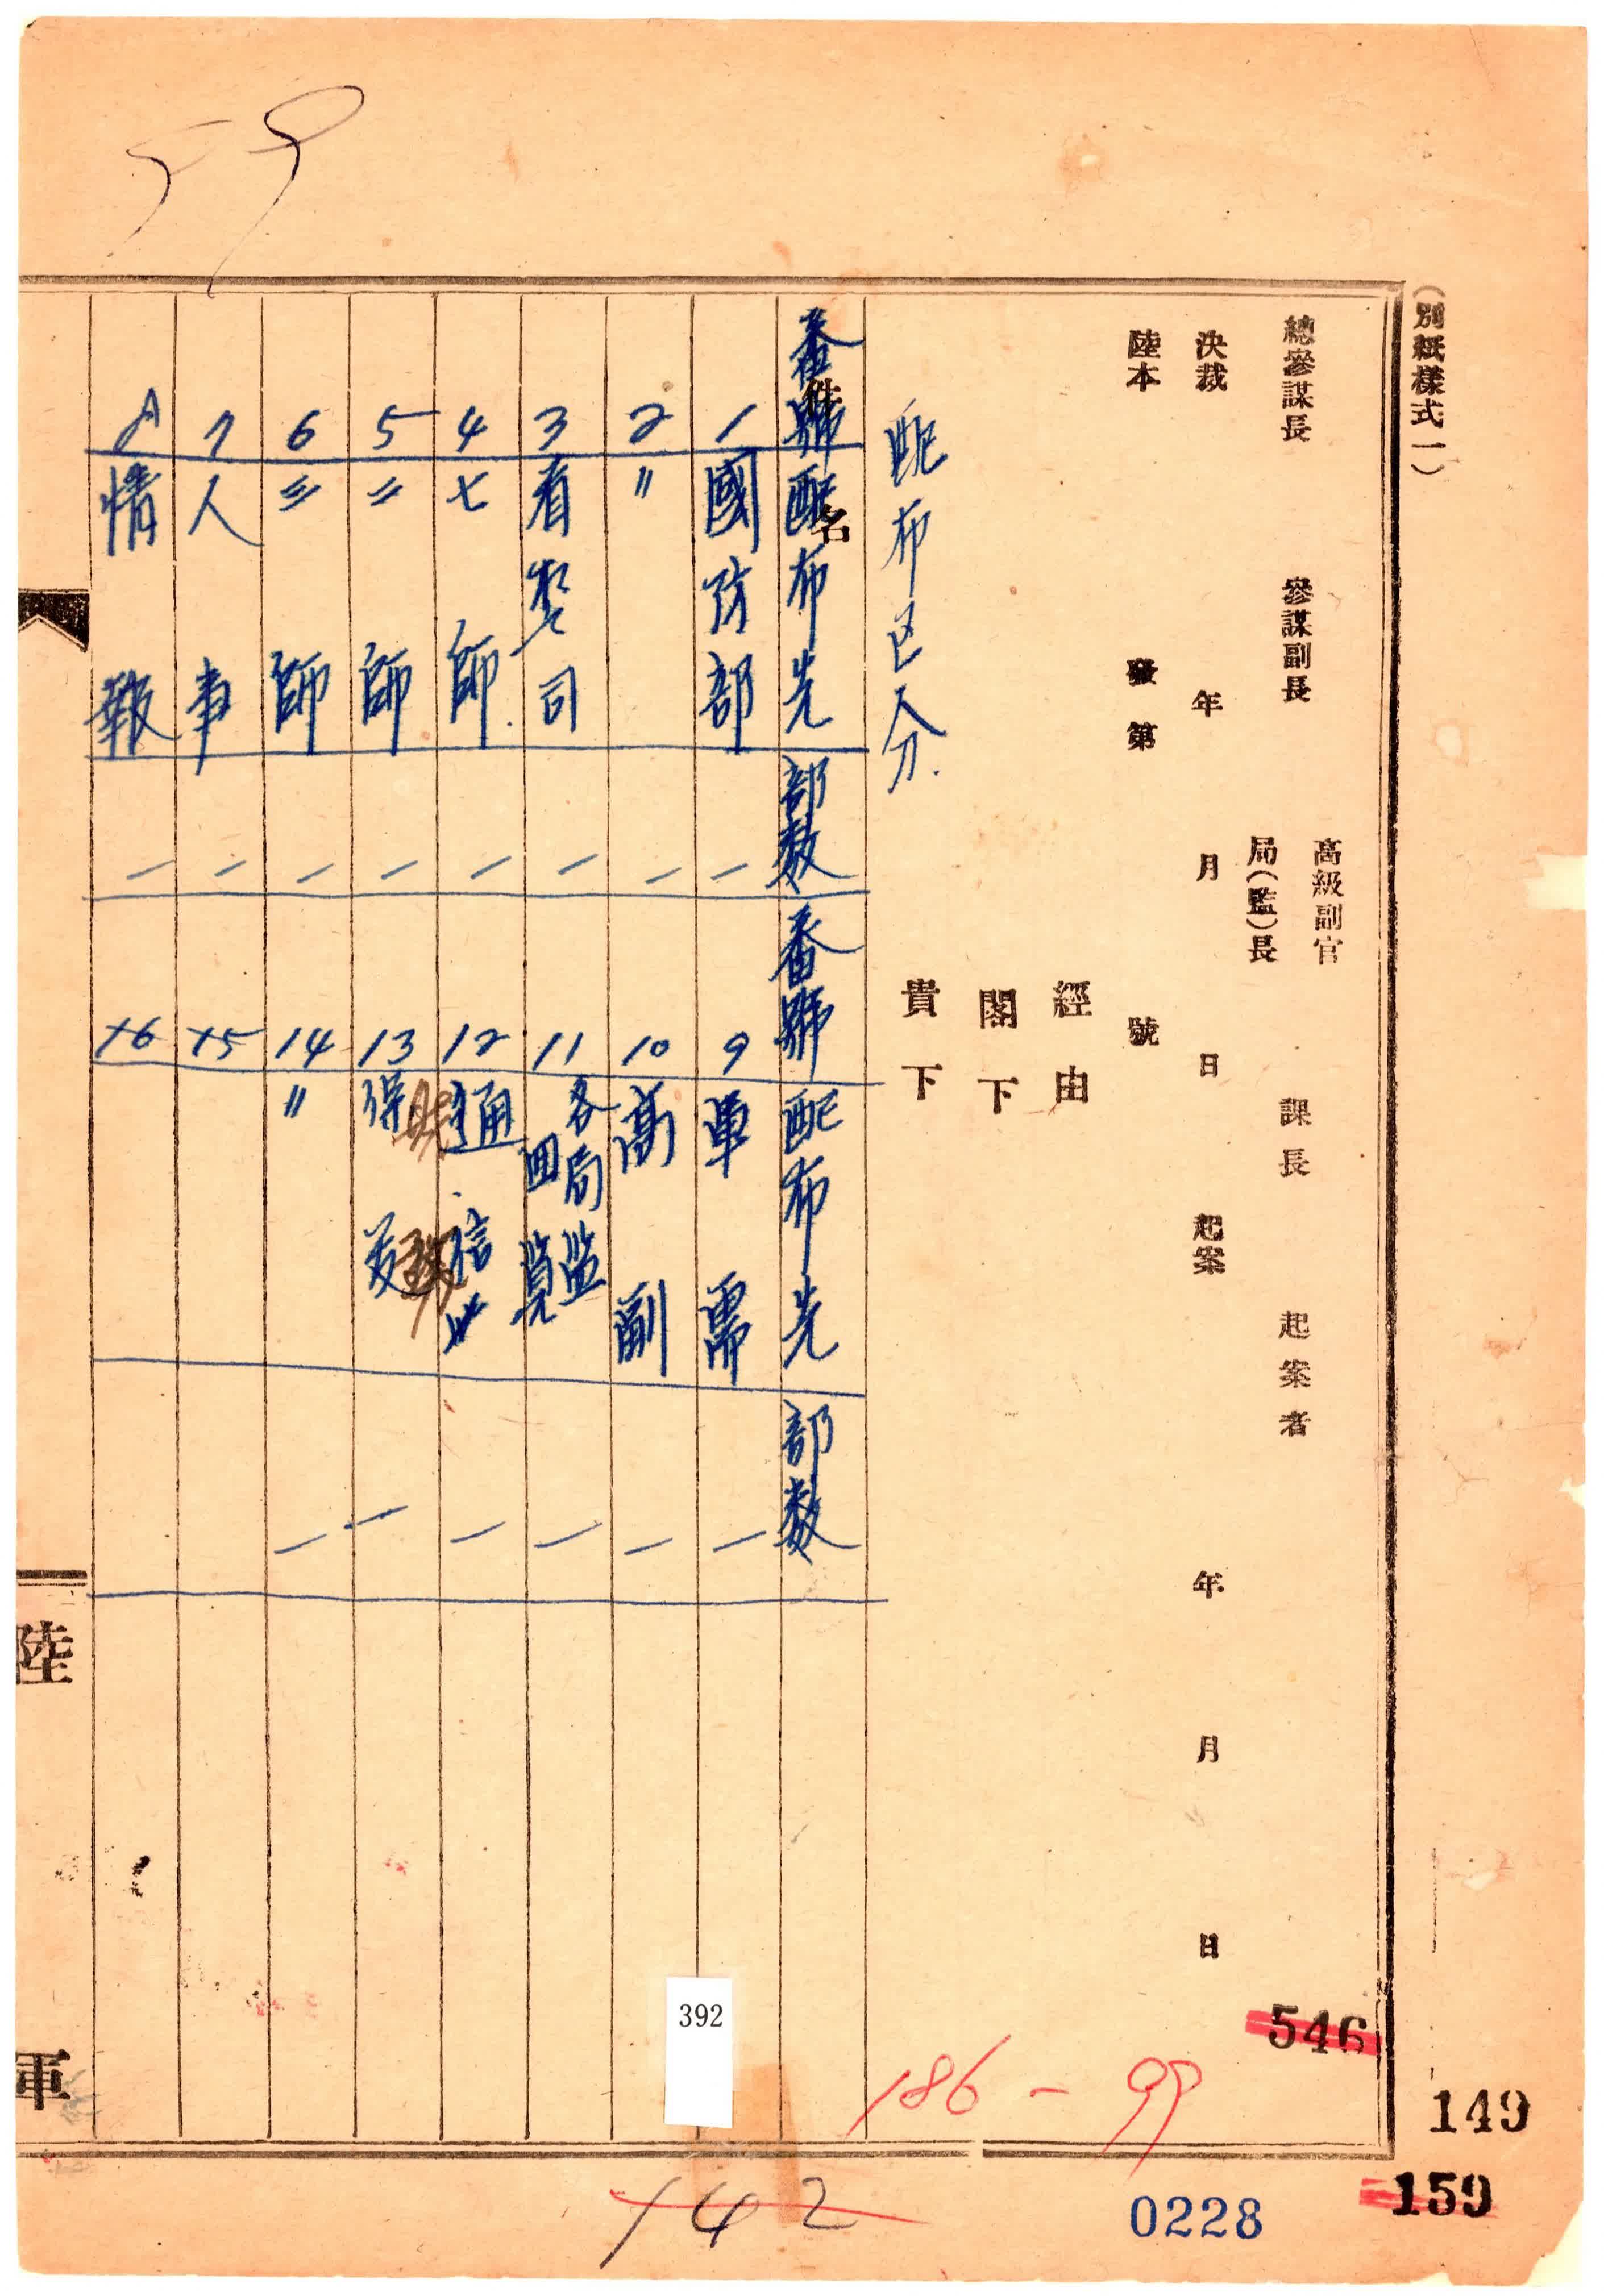 (別紙樣式一)
總參謀長 參謀副長 高級副官 局(監)長 課長 起案者
決裁 年 月 日 起案 年 月 日
陸本 發第 號
經由
閣下
貴下
配布区分
件名
番號 配布先 部数 番號 配布先 部数
1 國防部 一 9 軍需 一
2 〃 一 10 高副 一
3 首警司 一 11 各局監 一
4 七師 一 12 通信 一
5 二師 一 13 保 一
6 三師 一 14 〃 一
7 人事 一 15
8 情報 一 16
陸
軍
59
392
546
186-99
149
159
142
0228